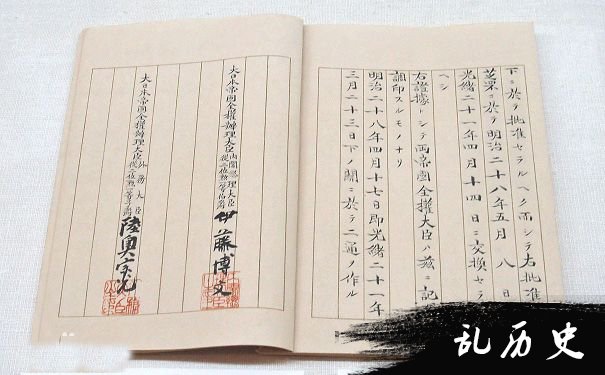 下ニ於テ批准セラルヘク而シテ右批准
芝罘ニ於テ明治二十八年五月八日
光緒二十一年四月十四日ニ交換セラ
ヘシ
右證據トシテ両帝國全權大臣ハ茲ニ記
調印スルモノナリ
明治二十八年四月十七日即光緒二十一年
三月二十三日下ノ關ニ於テ二通ヲ作ル
大日本帝國全權辦理大臣
内閣總理大臣
從二位勲一等伯爵
伊藤博文
大日本帝國全權辦理大臣
外務大臣
從二位勲一等子爵
陸奥宗光
乱历史